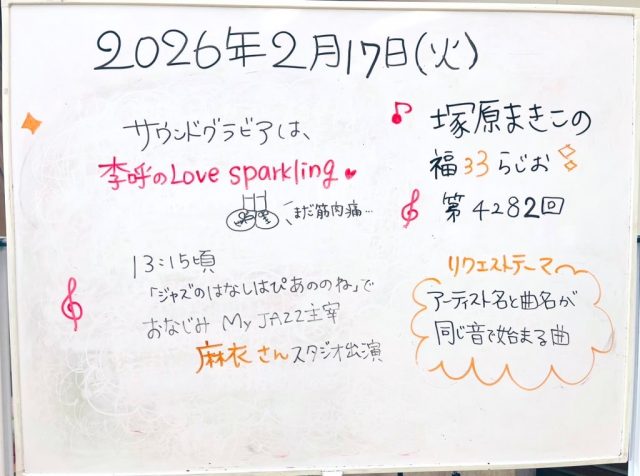 2026年2月17日(火)
サウンドグラビアは、
李呼のLove sparkling
まだ筋肉痛…
塚原まきこの
福33らじお
第4282回
13:15頃
「ジャズのはなしはぴあののね」で
おなじみ My JAZZ主宰
麻衣さんスタジオ出演
リクエストテーマ
アーティスト名と曲名が
同じ音で始まる曲